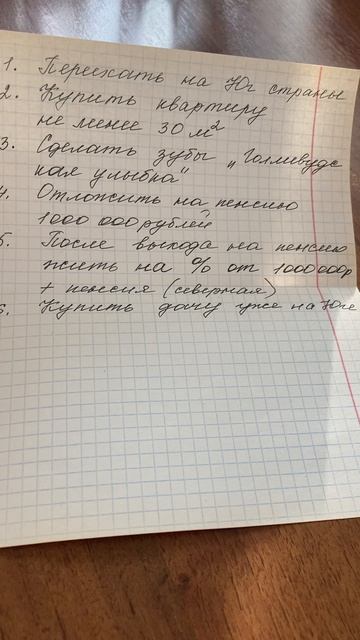 1. Переехать на Юг страны
2. Купить квартиру
не менее 30 м²
3. Сделать зубы „Голливудс
кая улыбка"
4. Отложить на пенсию
1000 000 рублей
5. После выхода на пенсию
жить на % от 1000 000р
+ пенсия (северная)
6. Купить дачу уже на Юге